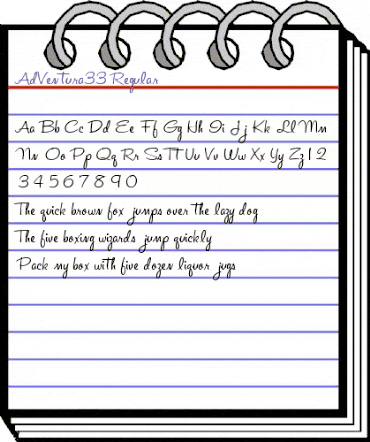 AdVentura33 Regular
Aa Bb Cc Dd Ee Ff Gg Hh Ii Jj Kk Ll Mm
Nn Oo Pp Qq Rr Ss Tt Uu Vv Ww Xx Yy Zz 1 2
3 4 5 6 7 8 9 0
The quick brown fox jumps over the lazy dog
The five boxing wizards jump quickly
Pack my box with five dozen liquor jugs